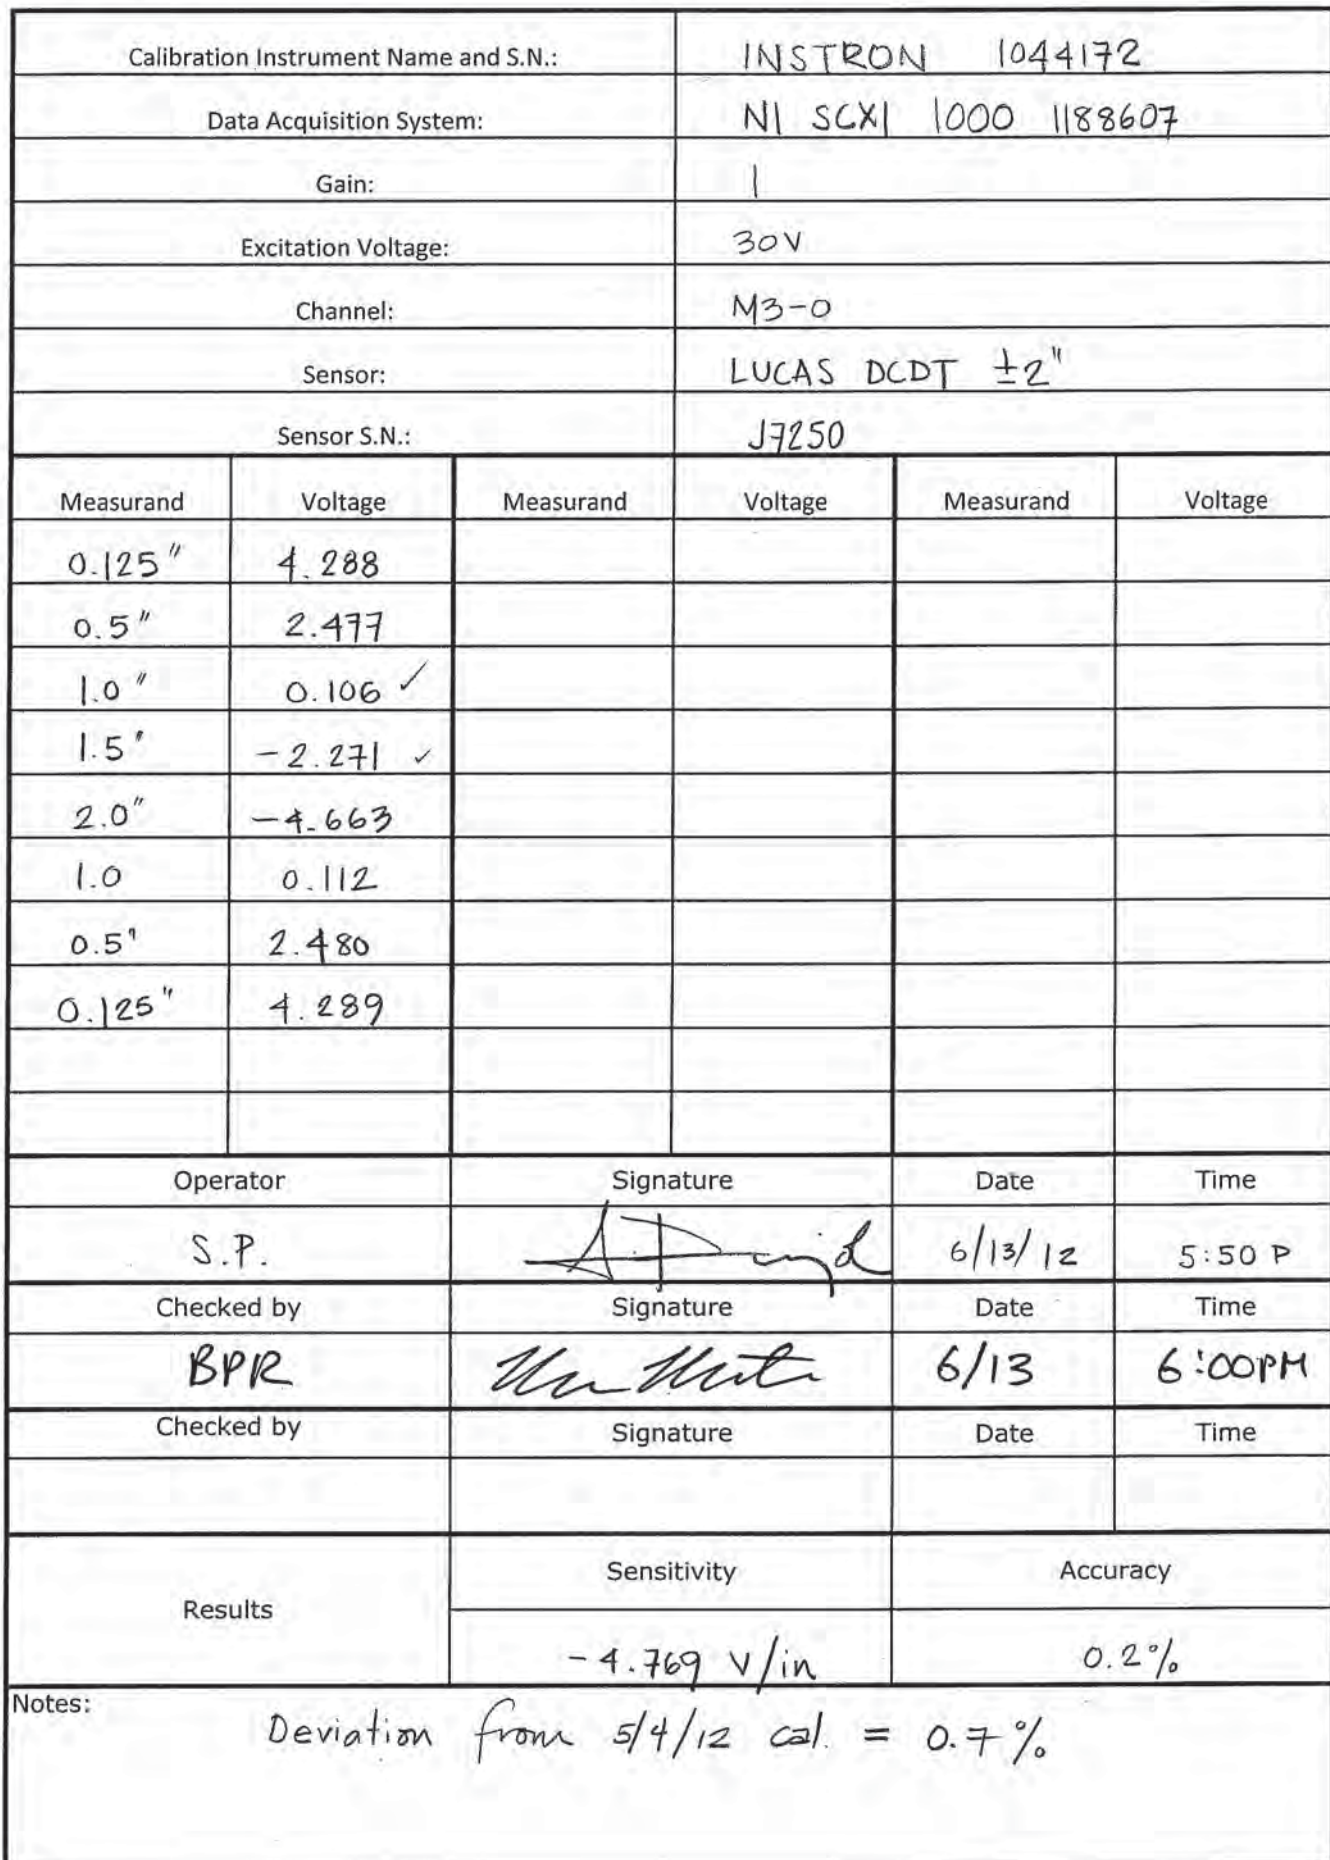 Calibration Instrument Name and S.N.: INSTRON 1044172
Data Acquisition System: NI SCXI 1000 1188607
Gain: 1
Excitation Voltage: 30V
Channel: M3-0
Sensor: LUCAS DCDT ±2"
Sensor S.N.: J7250
Measurand Voltage Measurand Voltage Measurand Voltage
0.125" 4.288
0.5" 2.477
1.0" 0.106 ✓
1.5" -2.271 ✓
2.0" -4.663
1.0 0.112
0.5" 2.480
0.125" 4.289
Operator Signature Date Time
S.P. 6/13/12 5:50 P
Checked by Signature Date Time
BPR 6/13 6:00PM
Checked by Signature Date Time
Results Sensitivity Accuracy
-4.769 V/in 0.2%
Notes: Deviation from 5/4/12 cal. = 0.7%